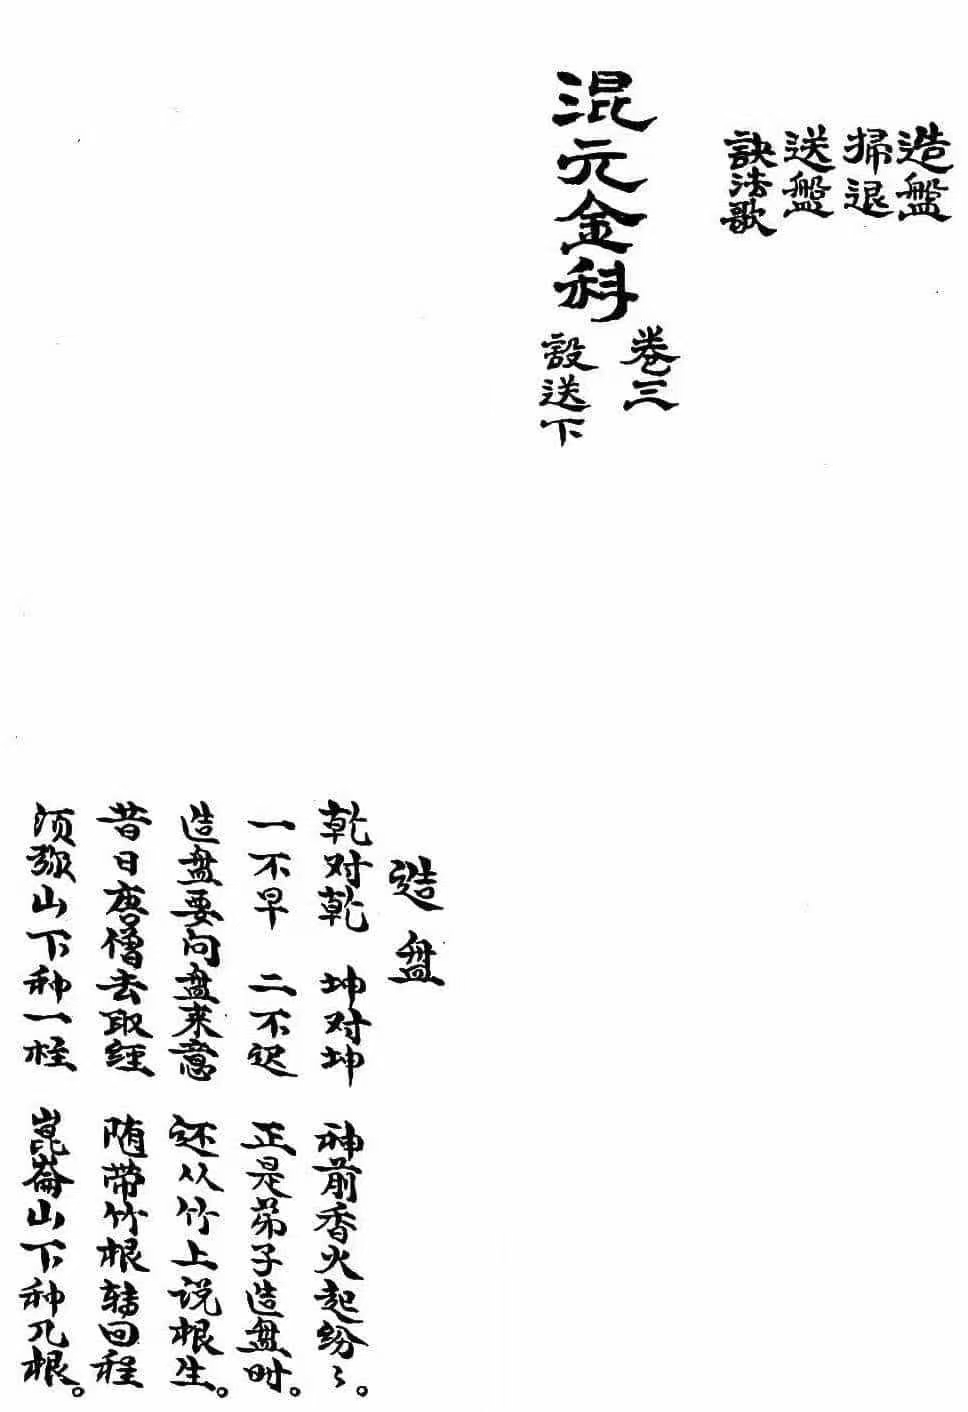 造盤
掃退
送盤
訣法歌
混元金科
卷三
設送下
造盘
乾对乾 坤对坤 神前香火起纷〻。
一不早 二不迟 正是弟子造盘时。
造盘要问盘来意 还从竹上说根生。
昔日唐僧去取经 随带竹根转回程
须弥山下种一桩 崑崙山下种几根。